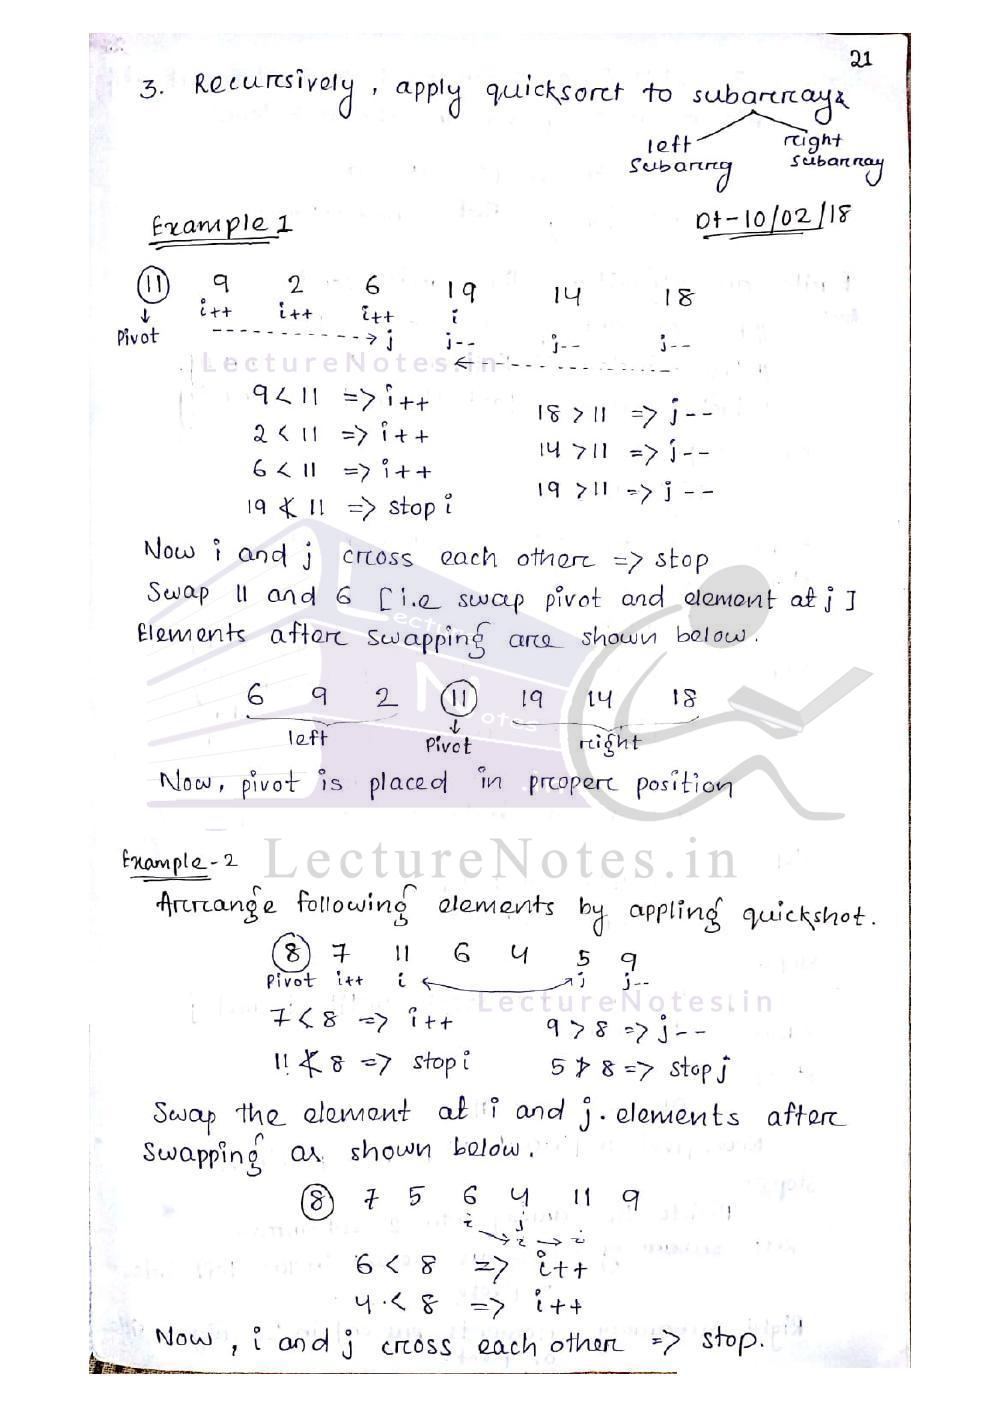 21
3. Recursively, apply quicksort to subarrays
left subarray
right subarray
Example 1
Dt-10/02/18
11 9 2 6 19 14 18
i++ i++ i++ i
Pivot j j-- j-- j--
LectureNotes.in
9 < 11 => i++
18 > 11 => j--
2 < 11 => i++
14 > 11 => j--
6 < 11 => i++
19 > 11 => j--
19 ≮ 11 => stop i
Now i and j cross each other => stop
Swap 11 and 6 [i.e swap pivot and element at j]
Elements after swapping are shown below.
6 9 2 11 19 14 18
left Pivot right
Now, pivot is placed in proper position
LectureNotes.in
Example-2
Arrange following elements by appling quickshot.
8 7 11 6 4 5 9
Pivot i++ i j j--
LectureNotes.in
7 < 8 => i++
9 > 8 => j--
11 ≮ 8 => stop i
5 ≯ 8 => stop j
Swap the element at i and j. elements after
swapping as shown below.
8 7 5 6 4 11 9
i j
i i
6 < 8 => i++
4 < 8 => i++
Now, i and j cross each other => stop.